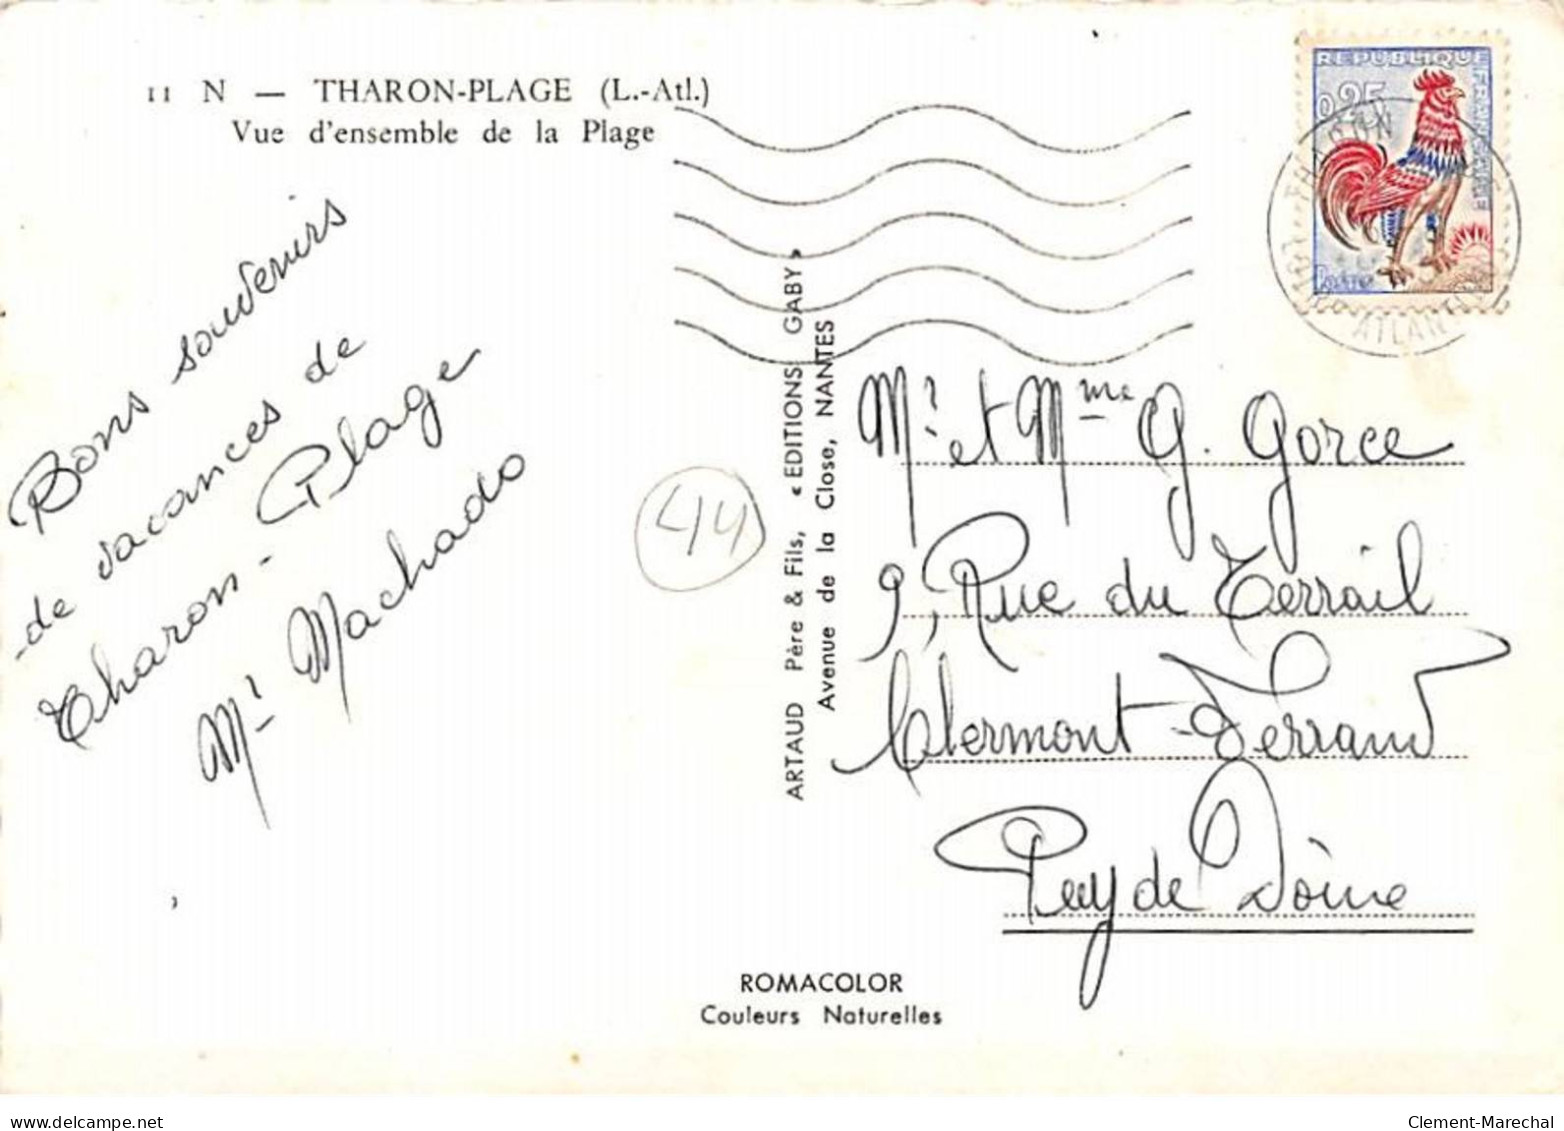 11 N — THARON-PLAGE (L.-Atl.)
Vue d'ensemble de la Plage
Bons souvenirs
de vacances de
Tharon-Plage
Mr Machado
44
ARTAUD Père & Fils, « EDITIONS GABY »
Avenue de la Close, NANTES
REPUBLIQUE FRANÇAISE
0,25
Postes
THARON PLAGE
LOIRE ATLANTIQUE
Mr et Mme G. Gorce
9, Rue du Terrail
Clermont-Ferrand
Puy de Dôme
ROMACOLOR
Couleurs Naturelles
delcampe.net
Clement-Marechal